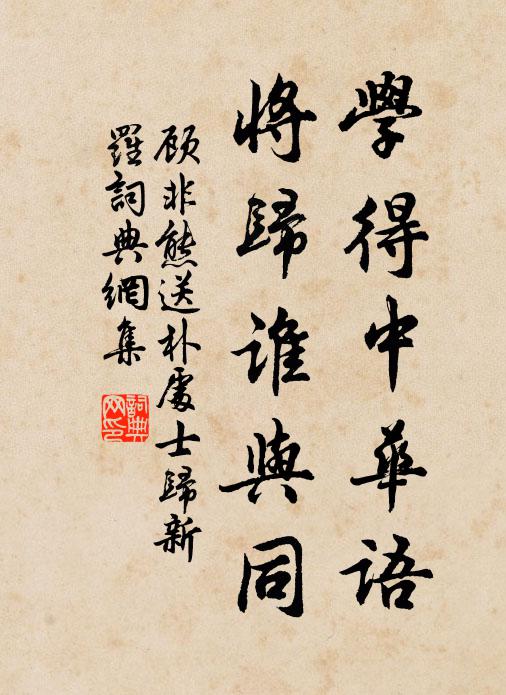 學得中華語
將歸誰與同
顧非熊送朴處士歸新
羅詞典網集
詞典
网印